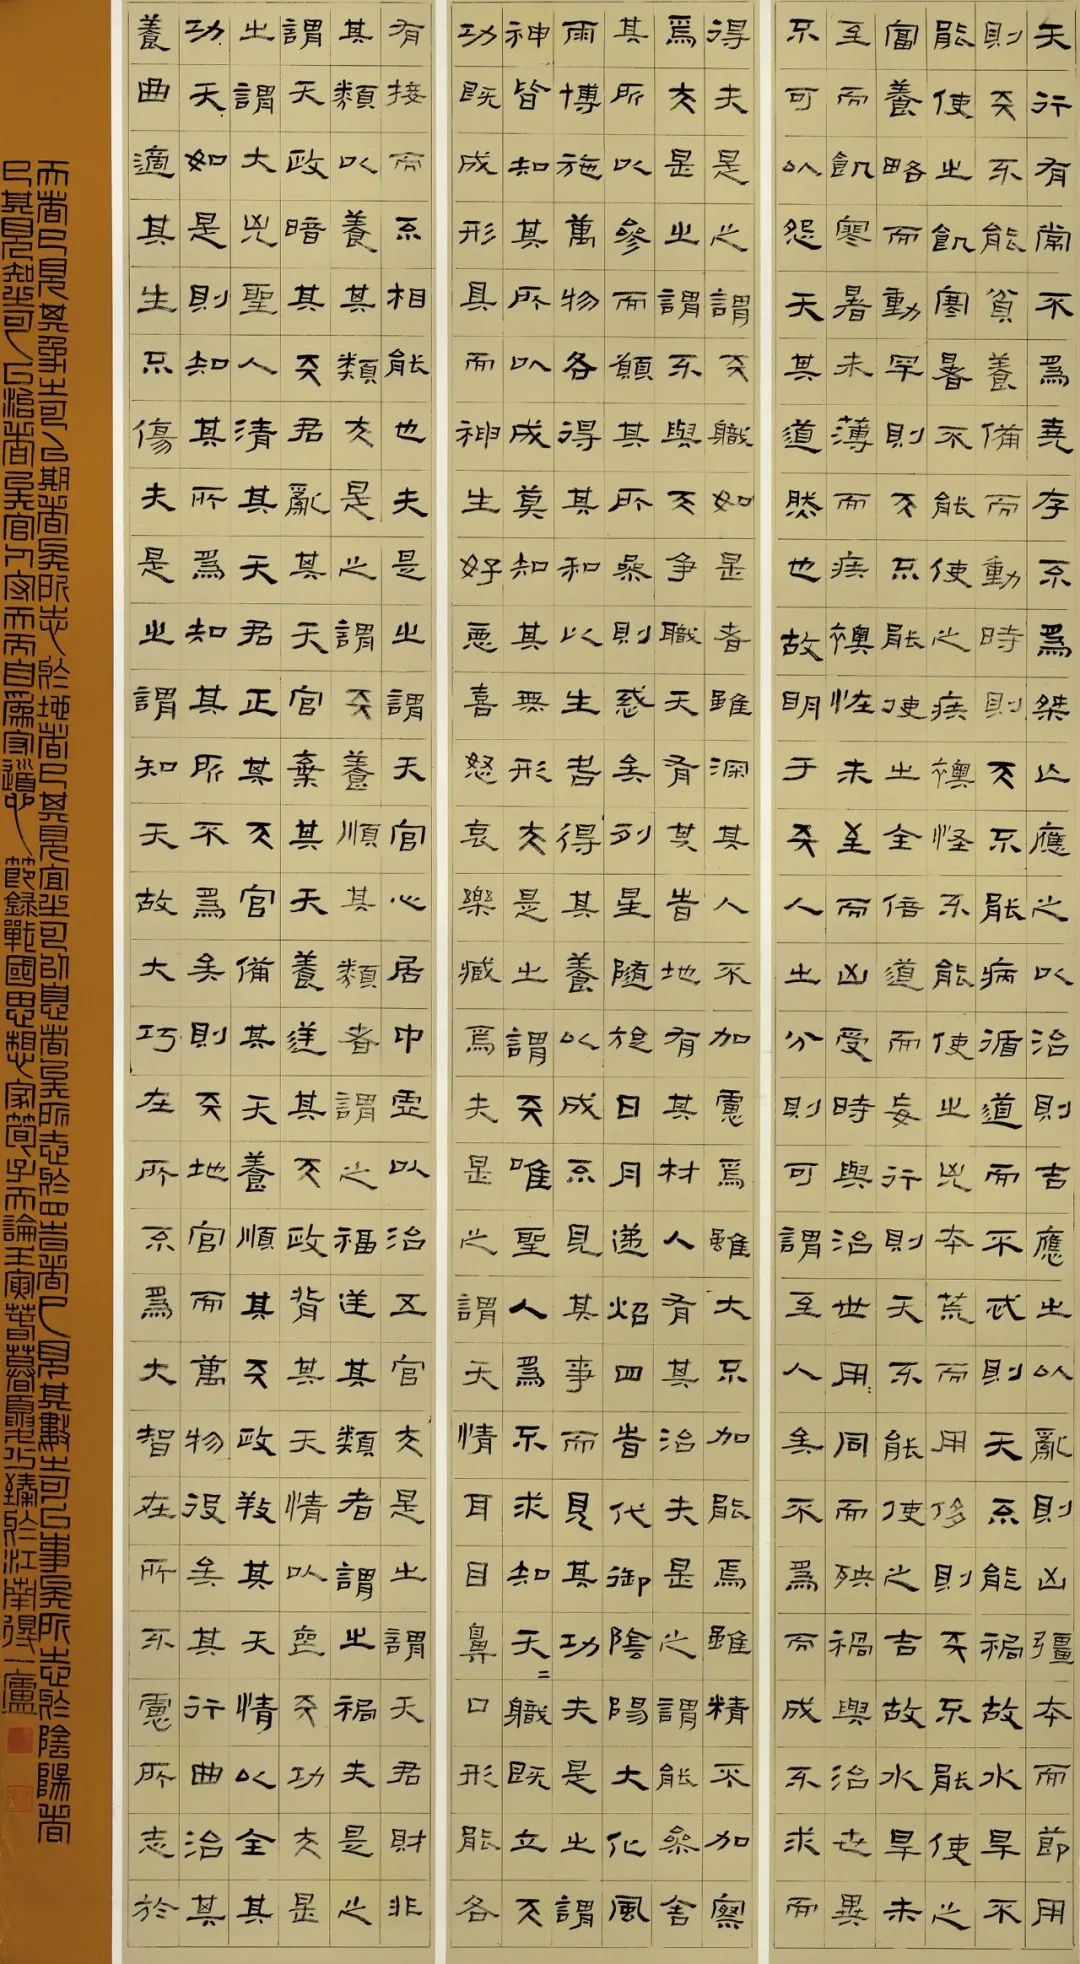 天行有常不為堯存不為桀亡應之以治則吉應之以亂則凶彊本而節用
則天不能貧養備而動時則天不能病循道而不忒則天不能禍故水旱不
能使之飢寒暑不能使之疾襖怪不能使之凶本荒而用侈則天不能使之
富養略而動罕則天不能使之全倍道而妄行則天不能使之吉故水旱未
至而飢寒暑未薄而疾襖怪未至而凶受時與治世用同而殃禍與治世異
不可以怨天其道然也故明于天人之分則可謂至人矣不為而成不求而
得夫是之謂天職如是者雖深其人不加慮焉雖大不加能焉雖精不加察
焉夫是之謂不與天爭職天有其時地有其材人有其治夫是之謂能參舍
其所以參而願其所參則惑矣列星隨旋日月遞炤四時代御陰陽大化風
雨博施萬物各得其和以生者得其養以成不見其事而見其功夫是之謂
神皆知其所以成莫知其無形夫是之謂天唯聖人為不求知天〻職既立天
功既成形具而神生好惡喜怒哀樂臧焉夫是之謂天情耳目鼻口形能各
有接而不相能也夫是之謂天官心居中虛以治五官夫是之謂天君財非
其類以養其類夫是之謂天養順其類者謂之福逆其類者謂之禍夫是之
謂天政暗其天君亂其天官棄其天養逆其天政背其天情以喪天功夫是
之謂大凶聖人清其天君正其天官備其天養順其天政養其天情以全其
功天如是則知其所為知其所不為矣則天地官而萬物役矣其行曲治其
養曲適其生不傷夫是之謂知天故大巧在所不為大智在所不慮所志於
天者已見其象之可以期者矣所志於地者已其見宜之可以息者矣所志於四時者已見其數之可以事矣所志於陰陽者
已其見知之可以治者矣官人守天而自為守道也 節錄戰國思想家荀子天論壬寅暮春臻於江南得一廬